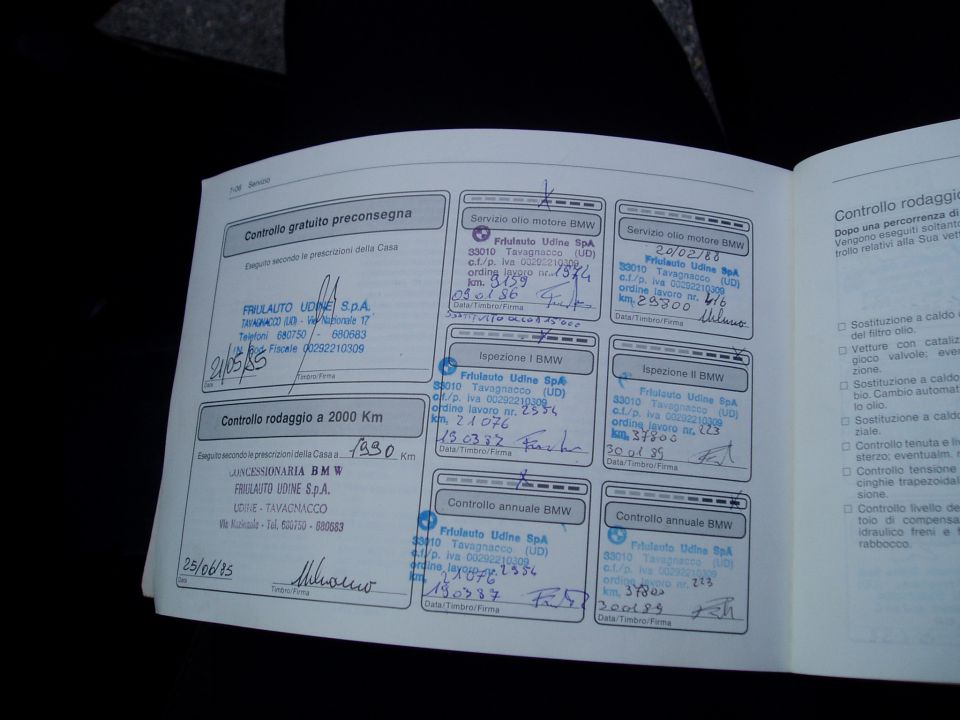 7-06 Servizio
Controllo gratuito preconsegna
Eseguito secondo le prescrizioni della Casa
FRIULAUTO UDINE S.p.A.
TAVAGNACCO (UD) - Via Nazionale 17
Telefoni 680750 - 680683
N. Cod. Fiscale 00292210309
21/05/85
Data
Timbro/Firma
Controllo rodaggio a 2000 Km
Eseguito secondo le prescrizioni della Casa a 1990 Km
CONCESSIONARIA BMW
FRIULAUTO UDINE S.p.A.
UDINE - TAVAGNACCO
Via Nazionale - Tel. 680750 - 680683
25/06/85
Data
Timbro/Firma
Servizio olio motore BMW
Friulauto Udine SpA
33010 Tavagnacco (UD)
c.f./p. iva 00292210309
ordine lavoro nr. 1574
km. 9159
090186
Data/Timbro/Firma
Ispezione I BMW
Friulauto Udine SpA
33010 Tavagnacco (UD)
c.f./p. iva 00292210309
ordine lavoro nr. 2954
km. 21076
190387
Data/Timbro/Firma
Controllo annuale BMW
Friulauto Udine SpA
33010 Tavagnacco (UD)
c.f./p. iva 00292210309
ordine lavoro nr. 2954
km. 21076
190387
Data/Timbro/Firma
Servizio olio motore BMW
20/02/88
Friulauto Udine SpA
33010 Tavagnacco (UD)
c.f./p. iva 00292210309
ordine lavoro nr. 416
km. 29800
Data/Timbro/Firma
Ispezione II BMW
Friulauto Udine SpA
33010 Tavagnacco (UD)
c.f./p. iva 00292210309
ordine lavoro nr. 223
km. 37800
300189
Data/Timbro/Firma
Controllo annuale BMW
Friulauto Udine SpA
33010 Tavagnacco (UD)
c.f./p. iva 00292210309
ordine lavoro nr. 223
km. 37800
300189
Data/Timbro/Firma
Controllo rodaggio
Dopo una percorrenza di
Vengono eseguiti soltanto
trollo relativi alla Sua vett
Sostituzione a caldo
del filtro olio.
Vetture con cataliz
gioco valvole; even
zione.
Sostituzione a caldo
bio. Cambio automat
lo olio.
Sostituzione a caldo
ziale.
Controllo tenuta e li
sterzo; eventualm. r
Controllo tensione
cinghie trapezoidal
sione.
Controllo livello de
toio di compensa
idraulico freni e f
rabbocco.